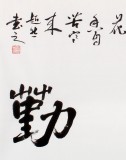 花
香自
苦寒
来
書之
勤